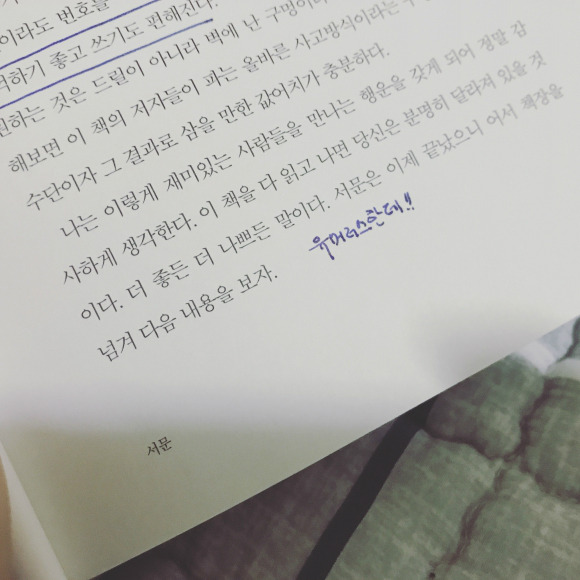 이라도 번호를
하기 좋고 쓰기도 편해진다.
원하는 것은 드릴이 아니라 벽에 난 구멍이
해보면 이 책의 저자들이 파는 올바른 사고방식이라는
수단이자 그 결과로 삼을 만한 값어치가 충분하다.
나는 이렇게 재미있는 사람들을 만나는 행운을 갖게 되어 정말 감
사하게 생각한다. 이 책을 다 읽고 나면 당신은 분명히 달라져 있을 것
이다. 더 좋든 더 나쁘든 말이다. 서문은 이제 끝났으니 어서 책장을
넘겨 다음 내용을 보자.
유머러스한데!!
서문